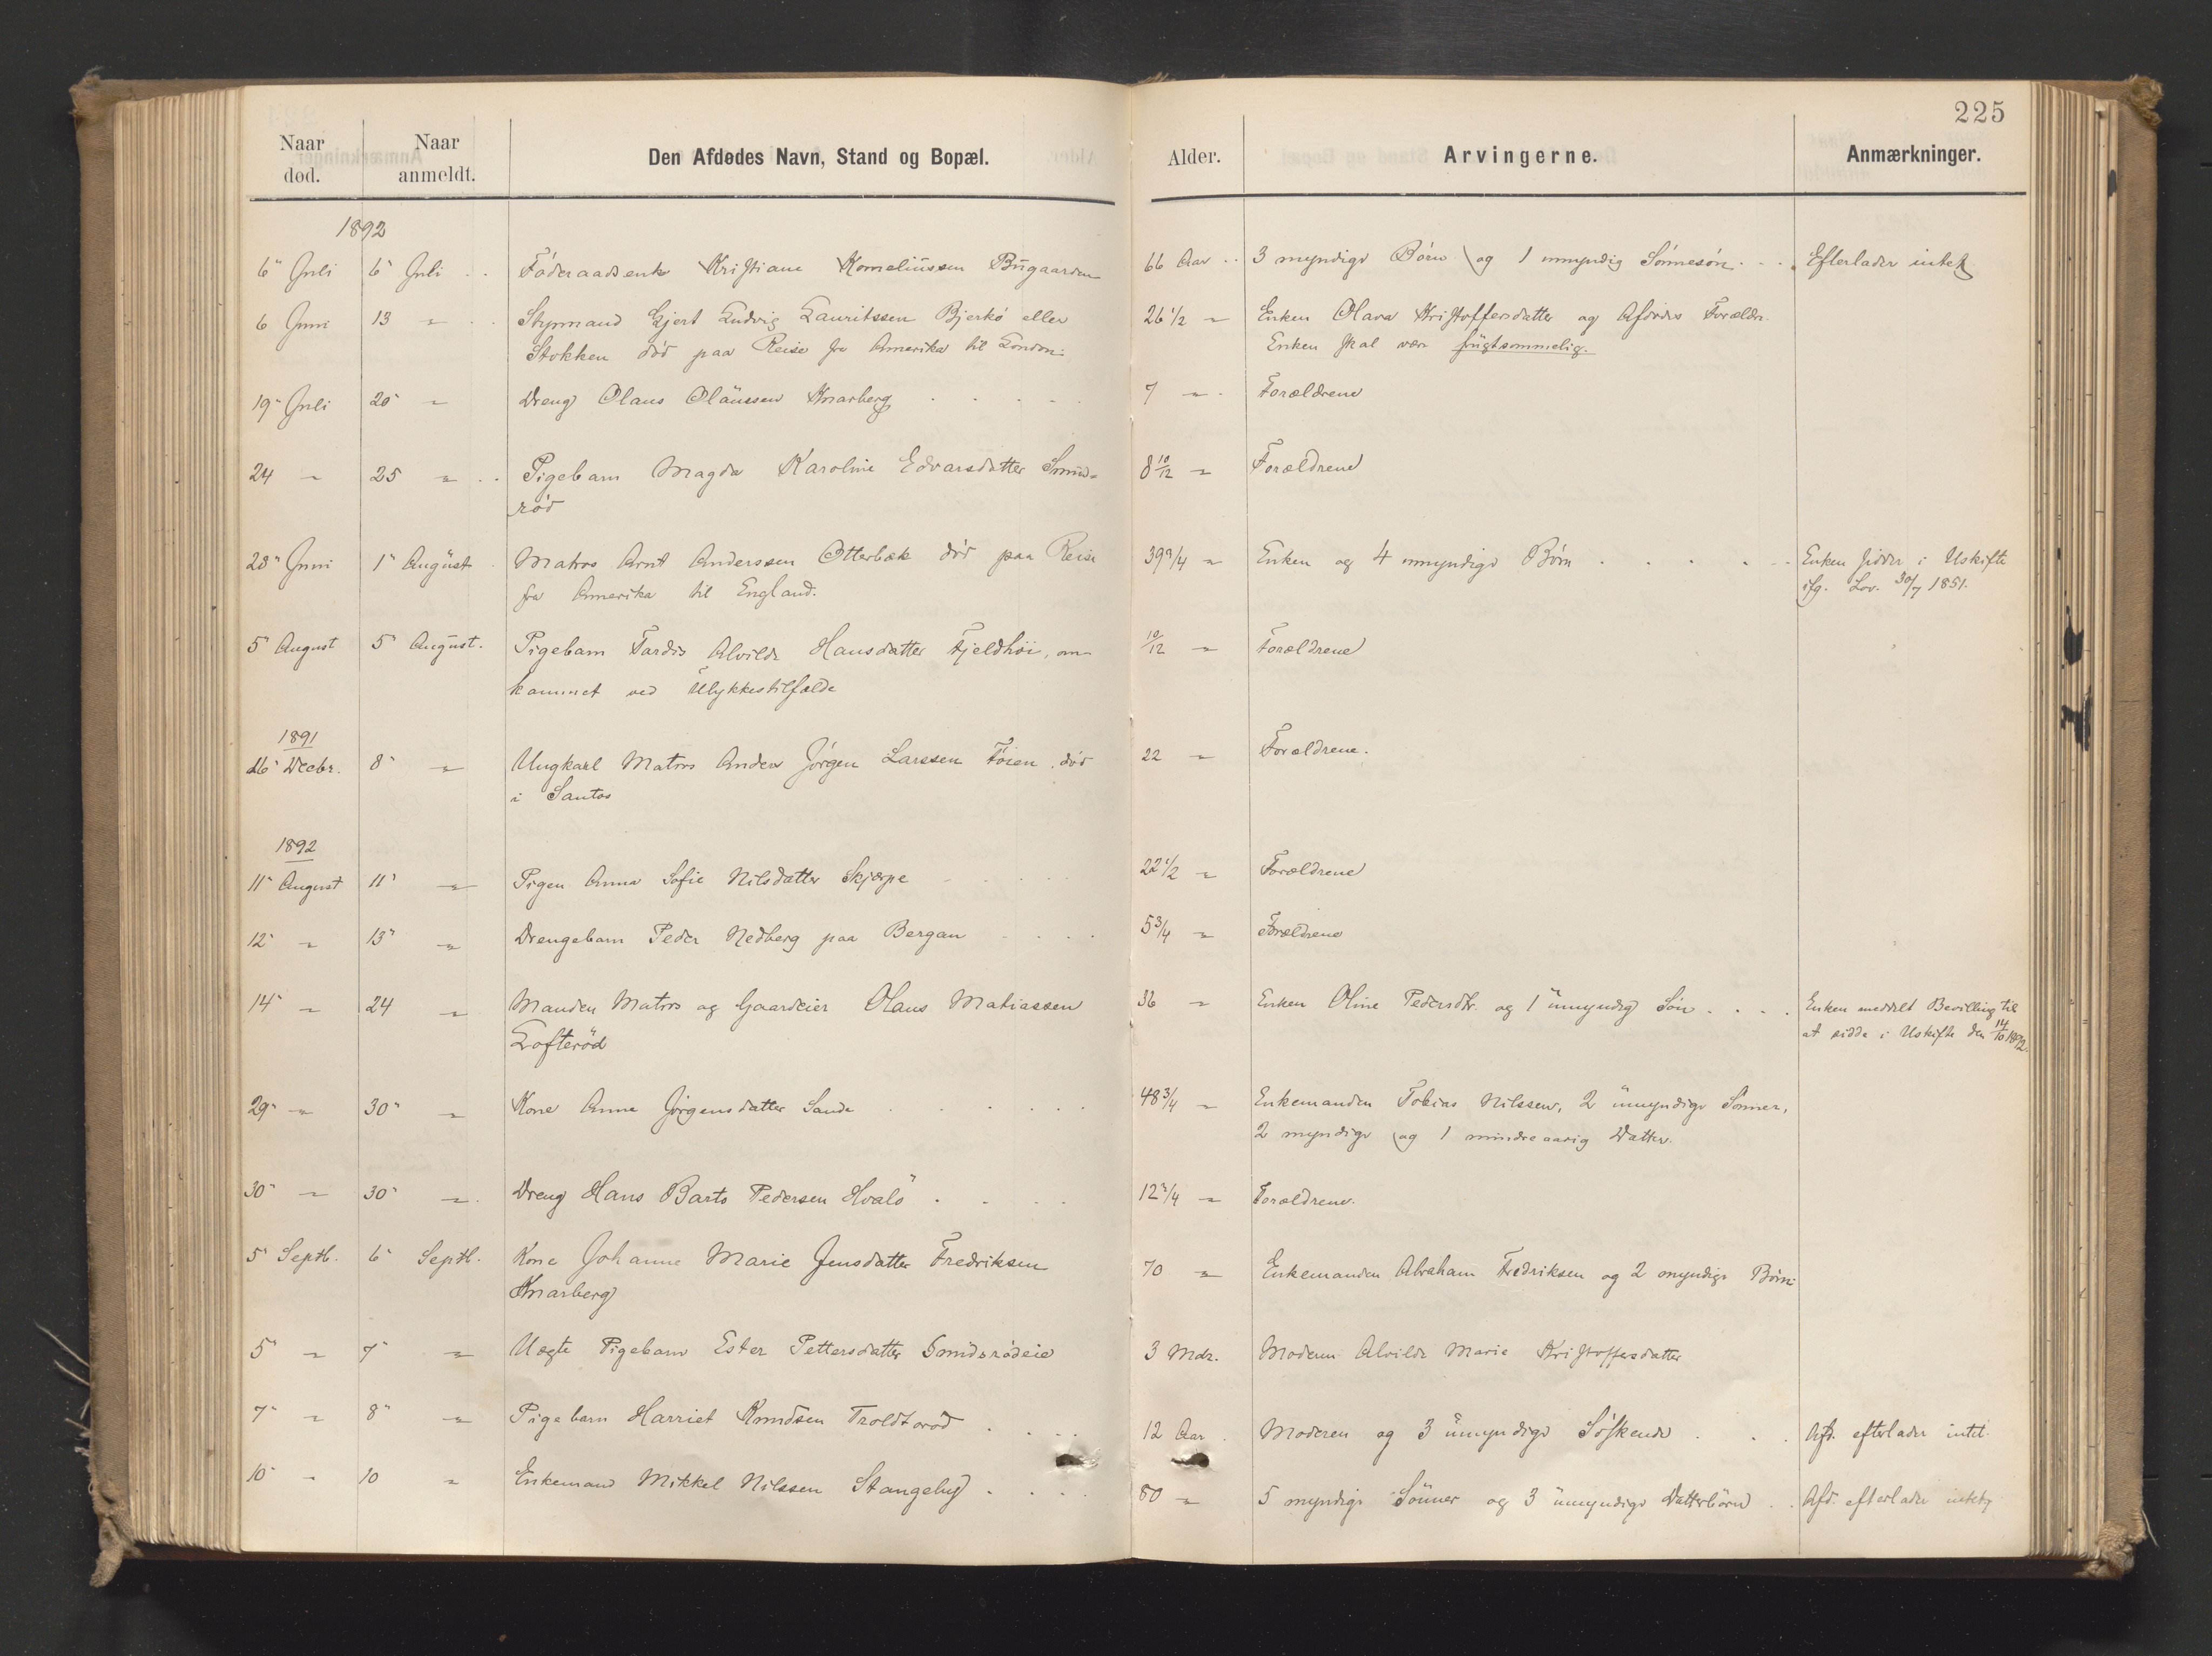 225
Naar død. Naar anmeldt. Den Afdødes Navn, Stand og Bopæl. Alder. Arvingerne. Anmærkninger.
1892
6" Juli 6" Juli Föderaadsenke Kristiane Korneliussen Bugaarden 66 Aar 3 myndige Börn og 1 umyndig Sönnesön Efterlader intet
6 Juni 13 " Styrmand Gjert Ludvig Lauritssen Bjerkö eller 26 1/2 " Enken Olava Kristoffersdatter og Afdödes Forældre.
Stokken död paa Reise fra Amerika til London. Enken skal være frugtsommelig.
19" Juli 20" " Dreng Olaus Olaussen Knarberg 7 " Forældrene
24 " 25 " Pigebarn Magda Karoline Edvarsdatter Smids= 8 10/12 " Forældrene
röd
28" Juni 1" August Matros Arnt Anderssen Otterbæk död paa Reise 39 3/4 " Enken og 4 umyndige Börn Enken sidder i Uskifte
fra Amerika til England. ifg. Lov. 30/7 1851.
5" August 5" August. Pigebarn Tardis Alvilde Hansdatter Fjeldhöi, om- 10/12 " Forældrene
kommet ved Ulykkestilfælde
1891
26" Decbr. 8" " Ungkarl Matros Anders Jörgen Larssen Föien, död 22 " Forældrene.
i Santos
1892
11" August 11" " Pigen Anna Sofie Nilsdatter Skjærpe 22 1/2 " Forældrene
12" " 13" " Drengebarn Peder Nedberg paa Bergan 5 3/4 " Forældrene
14" " 24 " Manden Matros og Gaardeier Olaus Matiassen 36 " Enken Oline Pedersdtr. og 1 umyndig Sön Enken meddelt Bevilling til
Lofteröd at sidde i Uskifte den 14/10 1892.
29" " 30" " Kone Anne Jörgensdatter Sande 48 3/4 " Enkemanden Tobias Nilssen, 2 umyndige Sönner,
2 myndige og 1 mindreaarig Datter.
30" " 30" " Dreng Hans Barts Pedersen Hvalö 12 3/4 " Forældrene.
5" Septb. 6" Septb. Kone Johanne Marie Jensdatter Fredriksen 70 " Enkemanden Abraham Fredriksen og 2 myndige Börn
Knarberg
5" " 7" " Uægte Pigebarn Ester Pettersdatter Smidsrödeie 3 Mdr. Moderen Alvilde Marie Kristoffersdatter
7" " 8" " Pigebarn Harriet Knudsen Troldsröd 12 Aar Moderen og 3 umyndige Söskende Afd. efterlader intet.
10" " 10 " Enkemand Mikkel Nilssen Stangeby 80 " 5 myndige Sönner og 3 umyndige Datterbörn Afd. efterlader intet